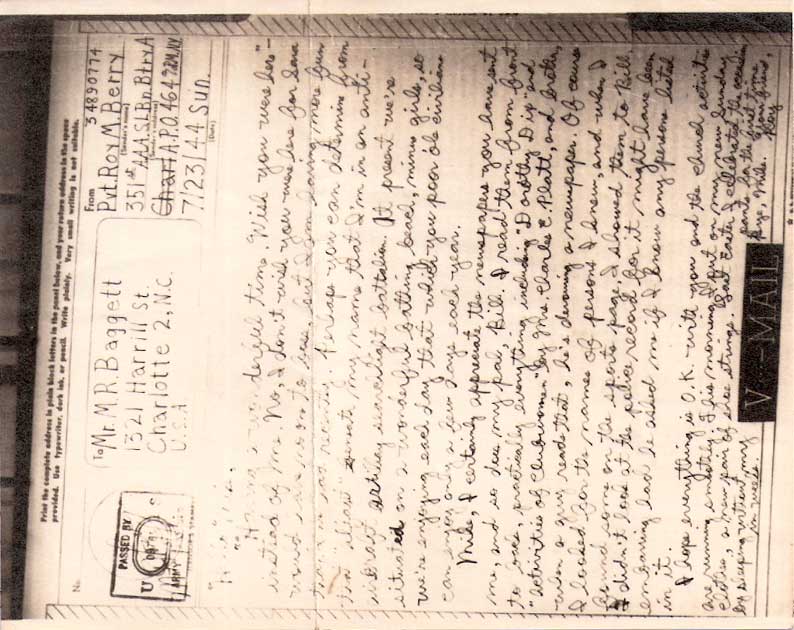 Print the complete address in plain block letters in the panel below, and your return address in the space
provided. Use typewriter, dark ink, or pencil. Write plainly. Very small writing is not suitable.
No.
PASSED BY
U
ARMY
To Mr. M.R. Baggett
1321 Harrill St.
Charlotte 2, N.C.
U.S.A
From
34890774
Pvt. Roy M. Berry
(Sender's name)
351st AAA. SL. Bn. Btry A
(Sender's address)
A.P.O. 464 % P.M. N.Y.
7/23/44 Sun.
(Date)
Having a wonderful time. Wish you were here"
instead of me. No, I don't wish you were here for
fun
Perhaps you can determine from
my name that I'm in an anti-
aircraft artillery searchlight battalion. At present we're
situated on a wonderful bathing beach, minus girls, so
we're enjoying each day that which you poor ole civilians
can enjoy only a few days each year.
Mike, I certainly appreciate the newspapers you have sent
me, and so does my pal, Bill. I read them from front
to back, practically everything, including "Dorothy Dix" and
"activities of Clubwomen" by Mrs. Charles E. Platt, and brother,
when a guy reads that, he's devouring a newspaper. Of course
I looked for the names of persons I knew, and when I
found some on the sports page, I showed them to Bill.
I didn't look at the police record for it might have been
embarrassing had he asked me if I knew any persons listed
in it.
I hope everything is O.K. with you and the church activities
are running smoothly. This morning I put on my new Sunday
clothes, a new pair of shoe strings. Last Easter I celebrated the occasion
by sleeping without my pants for the first time
in weeks. Bye Mike. Your friend,
Roy
V-MAIL